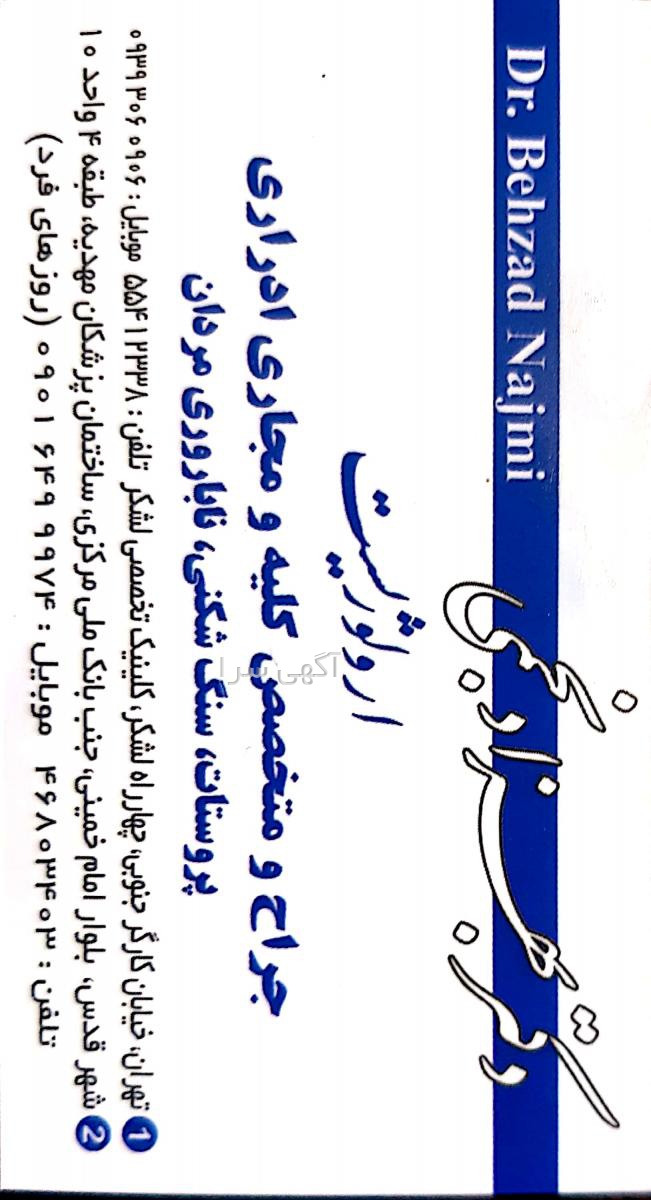 Dr. Behzad Najmi
دکتر بهزاد نجمی
ارولوژیست
جراح و متخصص کلیه و مجاری ادراری
پروستات، سنگ شکنی، ناباروری مردان
1 تهران، خیابان کارگر جنوبی، چهارراه لشکر، کلینیک تخصصی لشکر تلفن: ۵۵۴۱۲۳۳۸ موبایل: ۰۹۳۹۳۰۶۰۹۰۶
2 شهر قدس، بلوار امام خمینی، جنب بانک ملی مرکزی، ساختمان پزشکان مهدیه، طبقه ۴ واحد ۱۰
تلفن: ۴۶۸۰۳۴۰۳ موبایل: ۰۹۰۱ ۶۴۹ ۹۹۷۴ (روزهای فرد)
آگهی سرا